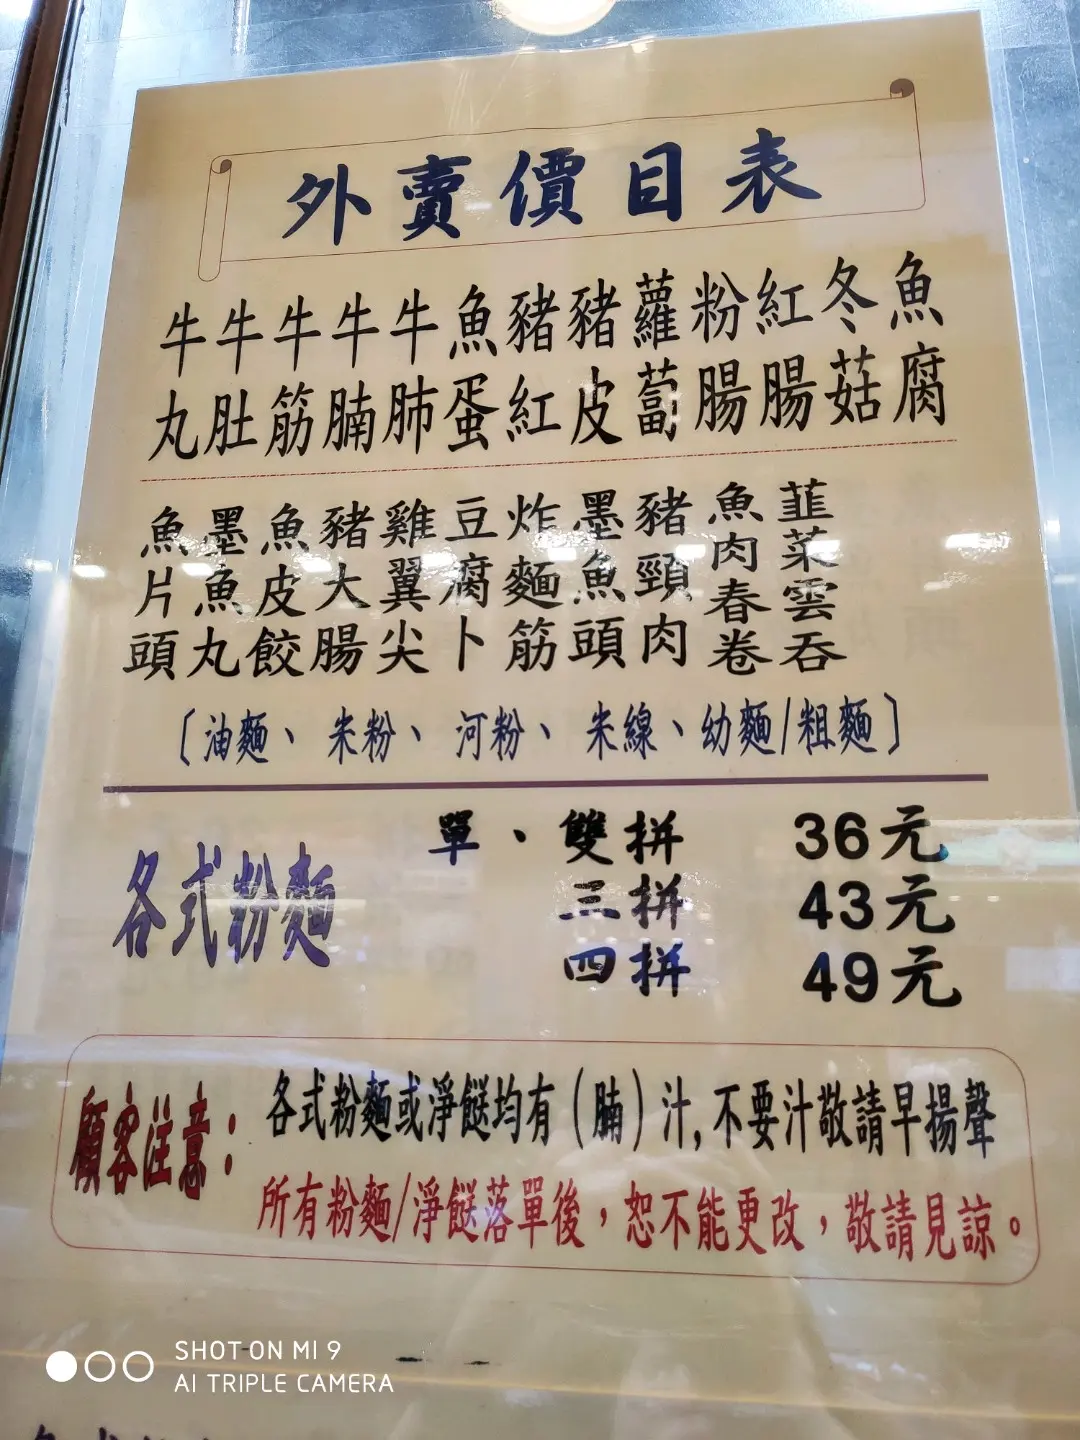 外賣價目表
牛丸 牛肚 牛筋 牛腩 牛肺 魚蛋 豬紅 豬皮 蘿蔔 粉腸 紅腸 冬菇 魚腐
魚片頭 墨魚丸 魚皮餃 豬大腸 雞翼尖 豆腐卜 炸麵筋 墨魚頭 豬頸肉 魚肉春卷 韮菜雲吞
〔油麵、米粉、河粉、米線、幼麵/粗麵〕
各式粉麵
單、雙拼 36元
三拼 43元
四拼 49元
顧客注意：
各式粉麵或淨餸均有(腩)汁,不要汁敬請早揚聲
所有粉麵/淨餸落單後，恕不能更改，敬請見諒。
SHOT ON MI 9
AI TRIPLE CAMERA